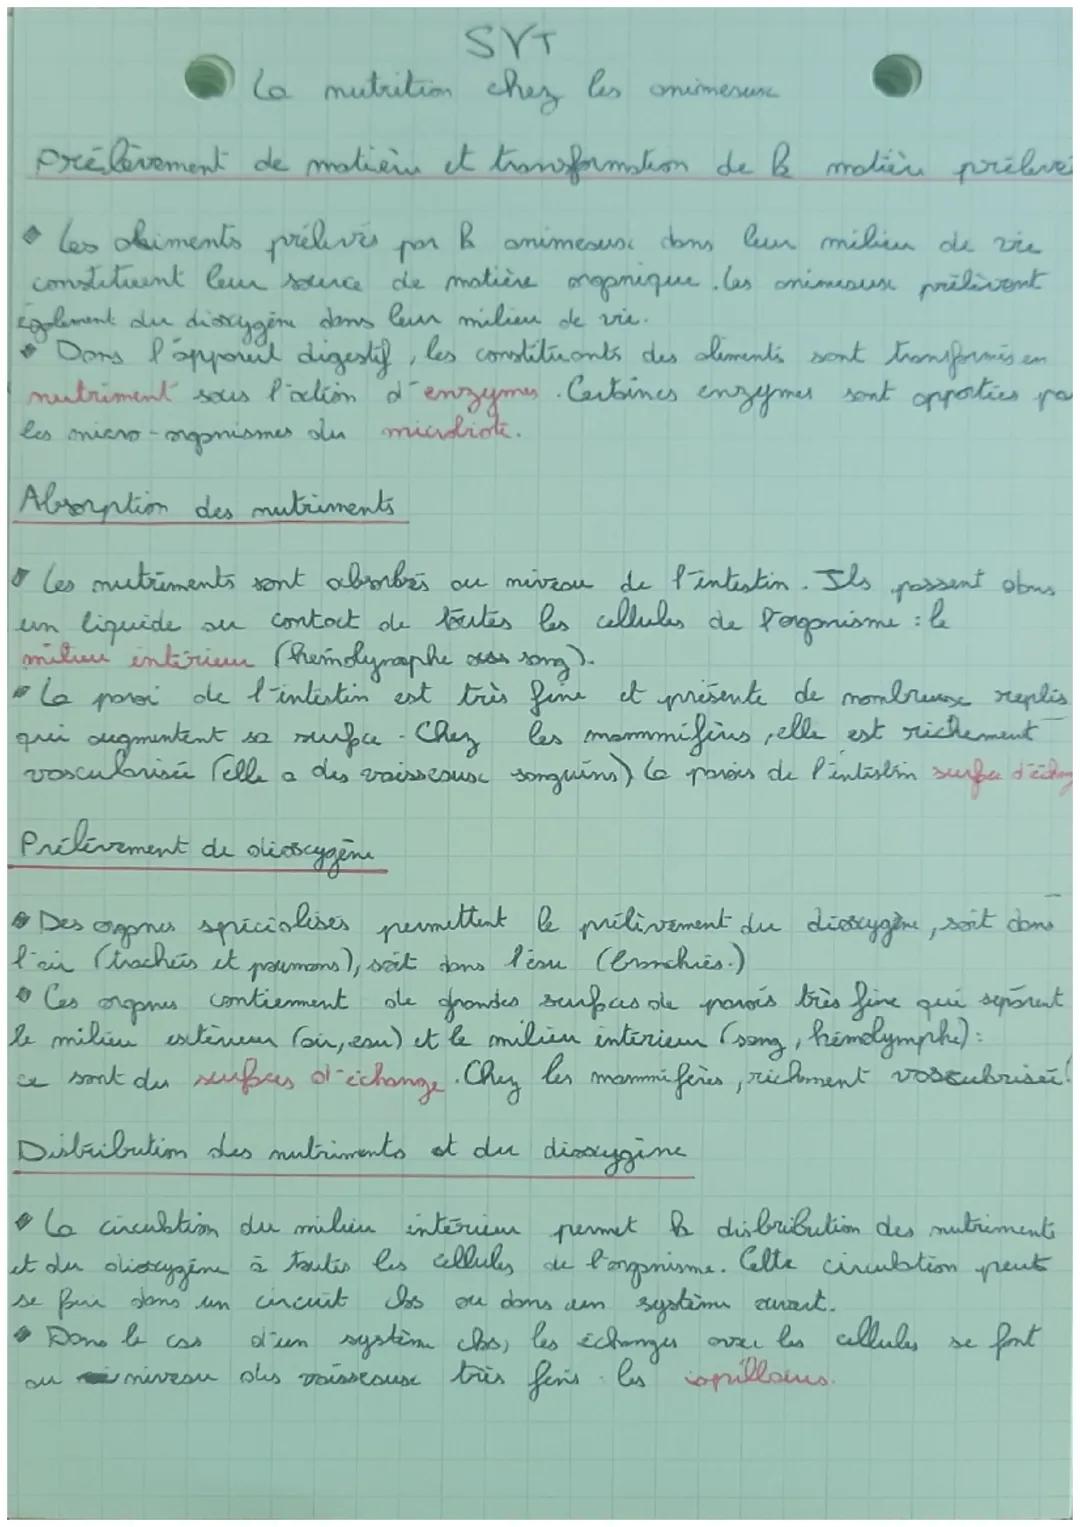 SVT
La nutrition chez les animeaux
Prélèvement de matière et transformation de la matière prélevé
Les aliments prélevés par la animeaux dans leur milieu de vie
constituent leur source de matière organique. Les animeaux prélèvent
également du dioxygène dans leur milieu de vie.
Dans l'appareil digestif, les constituants des aliments sont transformés en
nutriment sous l'action d'enzymes. Certaines enzymes sont apportées pa
les micro-organismes du microbiote.
Absorption des nutriments
Les nutriments sont absorbés au niveau de l'intestin. Ils passent dans
un liquide au contact de toutes les cellules de l'organisme : le
milieu intérieur (hémolymphe ou sang).
La paroi de l'intestin est très fine et présente de nombreuse replis
qui augmentent sa surface. Chez les mammifères, elle est richement
vascularisée (elle a des vaisseaux sanguins) La parois de l'intestin surface d'échang
Prélèvement de dioxygène
Des organes spécialisés permettent le prélèvement du dioxygène, soit dans
l'air (trachées et poumons), soit dans l'eau (branchies.)
Ces organes contiennent de grandes surfaces de parois très fine qui séparent
le milieu extérieur (air, eau) et le milieu intérieur (sang, hémolymphe) :
ce sont des surfaces d'échange. Chez les mammifères, richement vascularisée!
Distribution des nutriments et du dioxygène
La circulation du milieu intérieur permet la distribution des nutriments
et du dioxygène à toutes les cellules de l'organisme. Cette circulation peut
se faire dans un circuit clos ou dans un système ouvert.
Dans le cas d'un système clos, les échanges avec les cellules se font
au niveau des vaisseaux très fins : les capillaires.